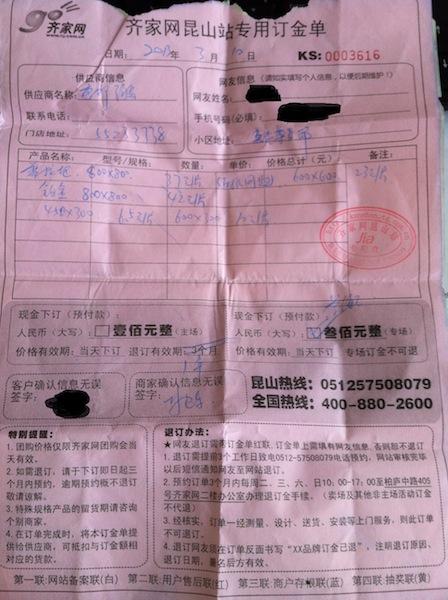 go 齐家网 齐家网昆山站专用订金单
日期: 2013 年 3 月 10 日 KS: 0003616
供应商信息
供应商名称:
联系电话:
门店地址: 55233338
网友信息 (请如实填写个人信息,以便后期维护!)
网友姓名:
手机号码(必填):
小区地址:
产品名称: 型号/规格: 数量: 单价: 价格总计(元) 备注:
800x80. 37元/片 600x600
800x800 42元/片
450x300 6.5元/片 600x300
齐家网昆山站
jia
现金下订(预付款):
人民币(大写): 壹佰元整(主场)
价格有效期: 当天下订 退订有效期: 个月
现金下订(预付款):
人民币(大写): 叁佰元整(专场)
价格有效期: 当天下订 专场订金不可退
客户确认信息无误
签字:
商家确认信息无误
签字:
昆山热线: 051257508079
全国热线: 400-880-2600
特别提醒:
1.团购价格仅限齐家网团购会当
天有效。
2.如需退订,请于下订即日起三
个月内预约,逾期预约概不退订
敬请谅解。
3.特殊规格产品的留货期请咨询
个别商家。
4.在订单完成时,将本订金单提
供给供应商,可抵扣与订金额相
对应的货款。
退订办法:
★网友退订需带订金单红联,订金单上需填有网友信息,否则恕不退订
1.退订需提前3个工作日致电0512-57508079电话预约,网站审核完毕
以后短信通知网友至网站退订。
2.预约订单3个月内每周二、三、六、日10:00-17:00至柏庐中路405
号齐家网二楼办公室办理退订金手续。(卖场及其他非主场活动订金
不代退)
3.经核实,订单一经测量、设计、送货、安装等上门服务,则此订单
不可退订。
4.退订网友须在订单反面书写“XX品牌订金已退”,注明退订原因、
退订日期,署名后方有效。
第一联:网站备案联(白) 第二联:用户售后联(红) 第三联:商户存根联(蓝) 第四联:抽奖联(黄)